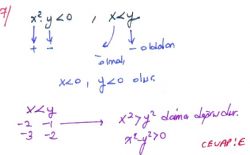 7/ x².y<0 , x<y
+ - - olduğundan
- olmalı
x<0 , y<0 olur.
x<y
-2 -1
-3 -2
x²>y² daima doğrudur.
x²y²>0
CEVAP:E